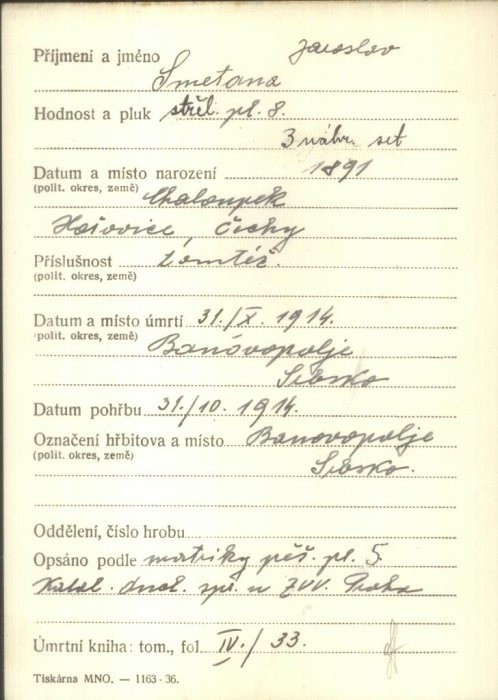 Jaroslav
Příjmení a jméno
Smetana
Hodnost a pluk střel. pl. 8.
3 náhr. set
Datum a místo narození 1891
(polit. okres, země) Chaloupek
Hořovice, Čechy
Příslušnost tamtéž.
(polit. okres, země)
Datum a místo úmrtí 31./X. 1914.
(polit. okres, země) Banovopolje
Srbsko
Datum pohřbu 31./10. 1914.
Označení hřbitova a místo Banovopolje
(polit. okres, země) Srbsko.
Oddělení, číslo hrobu
Opsáno podle matriky pěš. pl. 5.
Katol. duch. spr. u ZVV. Praha
Úmrtní kniha: tom., fol. IV./33.
Tiskárna MNO. — 1163-36.